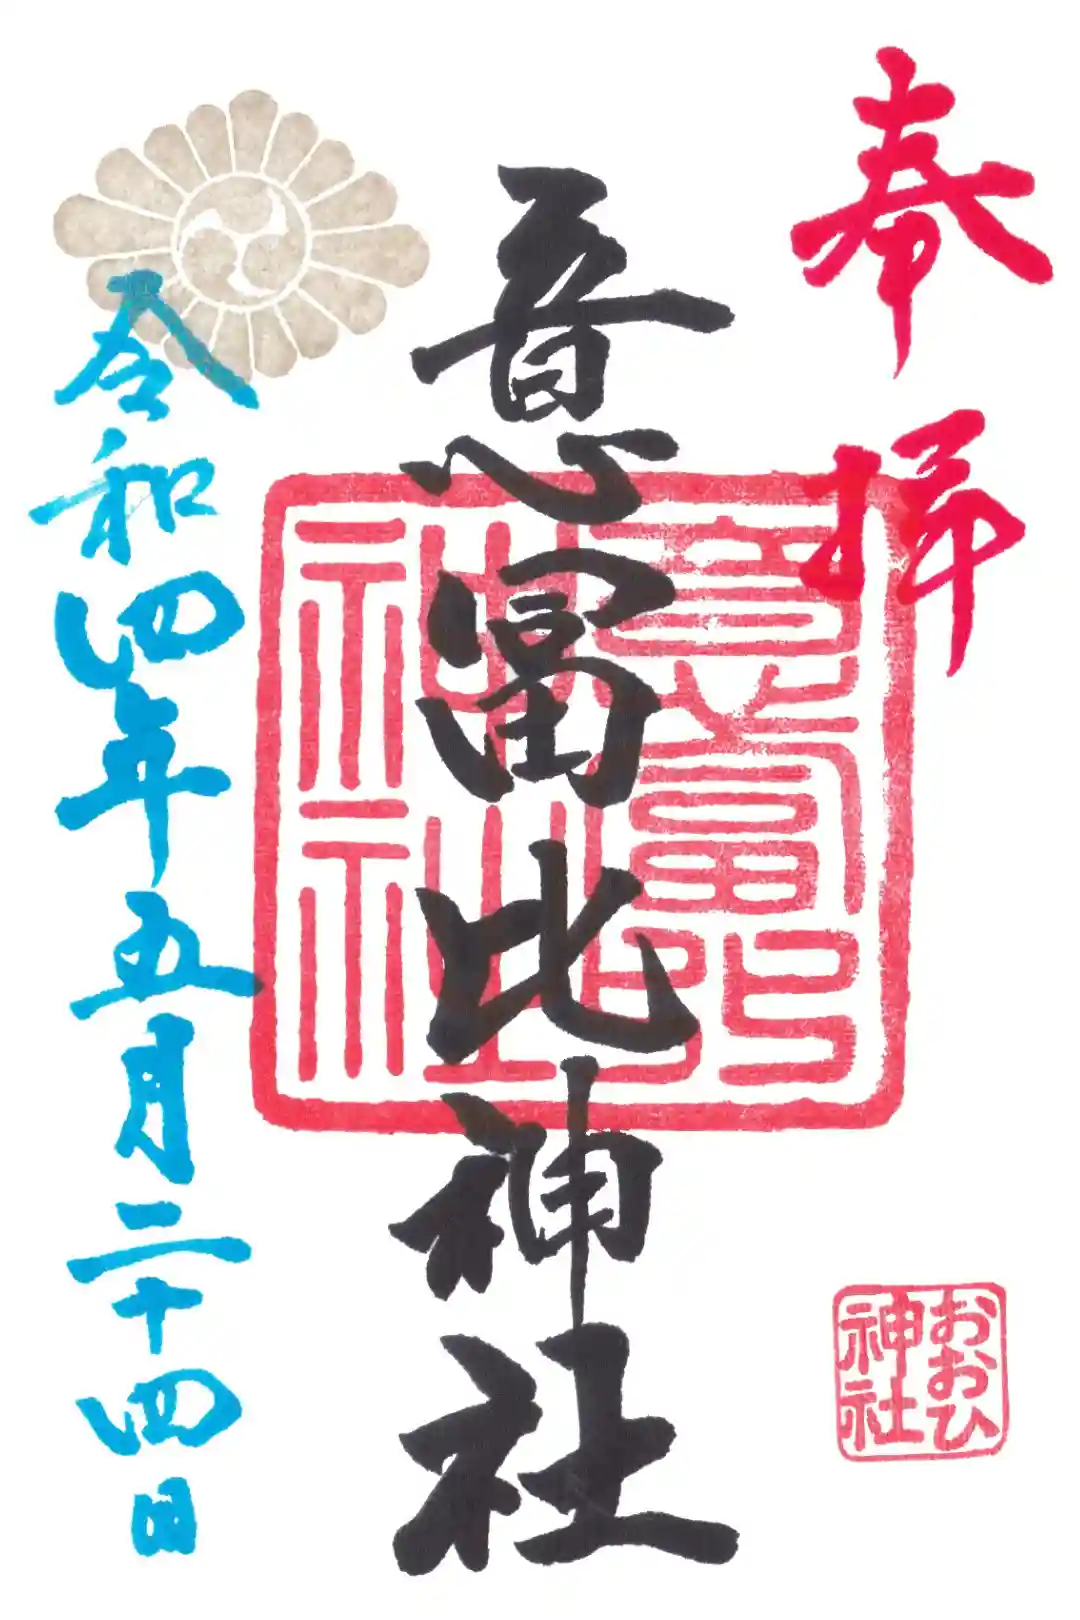 奉拝
意富比神社
意富比
神社
おおひ
神社
令和四年五月二十四日